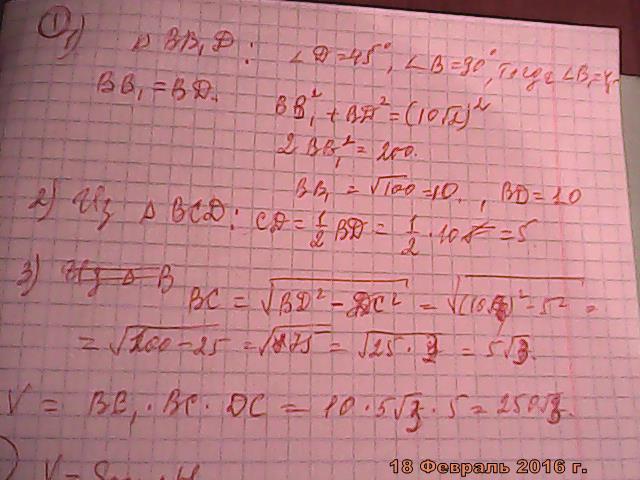 ①
1) △ BB₁D: ∠D=45°, ∠B=90°, тогда ∠B₁=45
BB₁=BD.
BB₁²+BD²=(10√2)²
2BB₁²=200.
BB₁ = √100=10. , BD=10
2) Из △ BCD: CD=½BD=½·10=5.
3) Из △ B
BC = √(BD²-DC²) = √(10)²-5² =
= √(100-25) = √75 = √(25·3) = 5√3.
V = BB₁·BC·DC = 10·5√3·5=250√3.
V=
18 Февраль 2016 г.